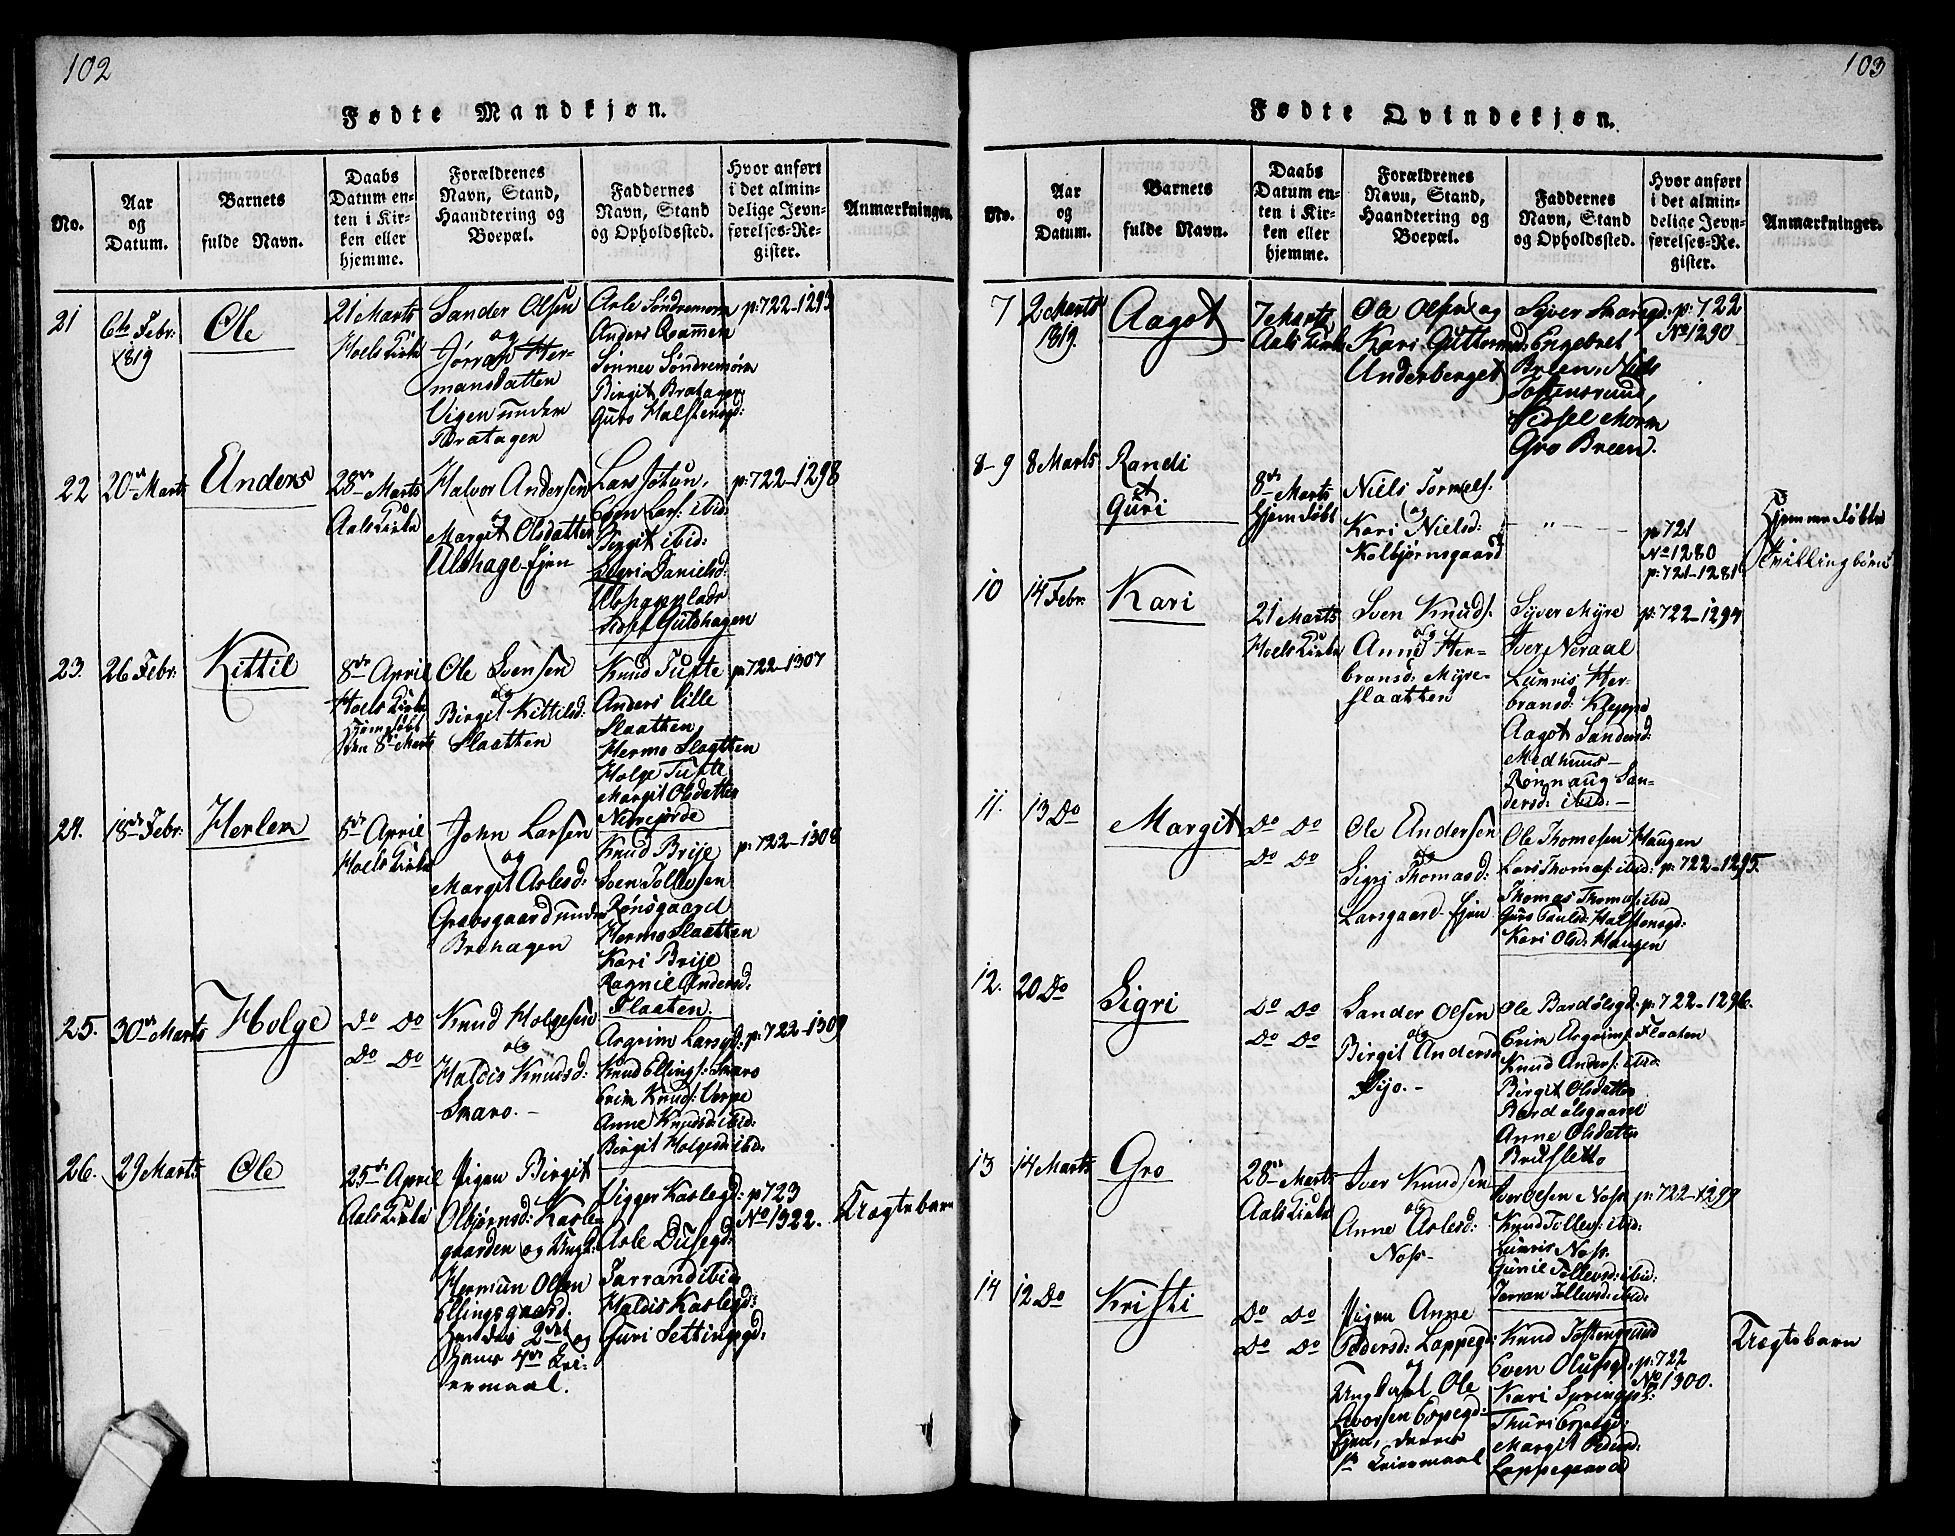 102
Fødte Mandkjøn.
No.
Aar
og
Datum.
Barnets
fulde Navn.
Daabs
Datum en-
ten i Kir-
ken eller
hjemme.
Forældrenes
Navn, Stand,
Haandtering og
Boepæl.
Faddernes
Navn, Stand
og Opholdssted.
Hvor anført
i det almin-
delige Jevn-
førelses-Re-
gister.
Anmærkninger.
21
6te Febr:
1819
Ole
21 Marts
Hoels Kirke
Sander Olsen
og
Jørran Her-
mansdatten
Vigen under
Bratagen
Asle Søndremoen
Anders
Sønnev Søndremoen
Birgit Bratagen
Guro Halstensgd:
p: 722-1293
22
20de Marts
Anders
28de Marts
Aals Kirke
Halvor Andersen
og
Margit Olsdatter
Ulshage-Ejen
Lars Jøtun,
Even Lars: ibid:
Birgit ibid:
Sigri Danielsd:
p: 722-1298
23.
26 Febr:
Kittil
8de April
Hoels Kirke
Hjemdøbt
den 8de Marts
Ole Svensen
og
Birgit Kittilsd:
Slaatten
Knud Tufte
Anders lille
Slaatten
Hermo Slaatten
Holge Tufte
Margit Olsdatter
p: 722-1307
24.
18de Febr:
Herlem
8de April
Hoels Kirke
John Larsen
og
Margit Aslesd:
under
Brehagen
Knud Brije
Sven Tollevsen
Rønsgaard
Hermo Slaatten
Kari Brije
Ragnil Andersd.
Slaaten.
p: 722-1308
25.
30de Marts
Holge
Do Do
Do Do
Knud Holgesen
og
Haldis Knudsd:
Snaro.-
Argrim Larsgd:
Knud Ellings: Snaro
Erim Knuds: Verpe
Anne Knudsd: ibid:
Birgit Holgesd: ibid.
p: 722-1309
26.
29 Marts
Ole
25de April
Aals Kirke
Pigen Birgit
Olbjørnsd: Kasle-
gaarden og Ungk:
Hermun Olsen
Ellingsgaard.
Hendes 2det og
Hans 4de Lei-
ermaal.
Vigger Kaslegd:
Asle Dusegd:
Tarrand ibid
Haldis Kaslegd:
Guri Settingsgd:
p 723
No 1322.
Uægtebarn
103
Fødte Qvindekjøn.
No.
Aar
og
Datum.
Barnets
fulde Navn.
Daabs
Datum en-
ten i Kir-
ken eller
hjemme.
Forældrenes
Navn, Stand,
Haandtering og
Boepæl.
Faddernes
Navn, Stand
og Opholdssted.
Hvor anført
i det almin-
delige Jevn-
førelses-Re-
gister.
Anmærkninger.
7
2 Marts
1819.
Aagot
7 Marts
Aals Kirke
Ole Olsen og
Kari Guttormsd:
Underberget
Syver Skarsgd:
Engebret
Breen, Niels
Tostensrud,
Sidsel Moen
Gro Breen.
p: 722
No 1290
8-9
8 Marts
Randi
&
Guri
8de Marts
Hjemdøbt
Niels Tormels.
og
Kari Nielsd:
Kolbjørnsgaard
- " -
p: 721
No 1280
p: 721-1281
Hjemmedøbte
Tvillingbørn
10
14 Febr:
Kari
21 Marts
Hoels Kirke
Sven Knuds.
og
Anne Her-
bransd: Myre-
slaatten
Syver Myre
Iver Neraal
Lumris Her-
bransd: Kleppe
Aagot Sandersd:
Medhuus-
Rønnaug San-
dersd: ibid:-
p: 722-1294
11.
13 Do
Margit
Do Do
Do Do
Ole Andersen
og
Sigrj Thomasd:
Larsgaard-Ejen
Ole Thomesen Haugen
Lars Thomas: ibid:
Thomas Thomas: ibid
Guro Paulsd: Halstensgd:
Kari Olsd: Haugen
p: 722-1295.
12.
20 Do
Sigri
Do Do
Do Do
Sander Olsen
og
Birgit Andersd
Sijo.-
Ole Bardølsgd:
Erim Argrims: Slaaten
Knud Anders: ibid:
Birgit Olsdatter
Bardølsgaard
Anne Olsdatter
p: 722-1296.
13
14 Marts
Gro
28de Marts
Aals Kirke
Iver Knudsen
og
Anne Aslesd:
Noss-
Iver Olsen Noss
Knud Tollevs: ibid:
Lumris Noss.
Gunil Tollevsd: ibid:
Jorran Tollevsd: ibid:
p: 722-1299
14
12 Do
Kristi
Do Do
Do Do
Pigen Anne
Pedersd: Loppegd:
og
Ungkarl Ole
Ejen, Deres
1ste Leiermaal
Knud Tostensrud
Even Olusgd:
Kari
Thuri Espegd:
Margit Pedersd:
Loppegaard
p: 722
No 1300.
Uægtebarn